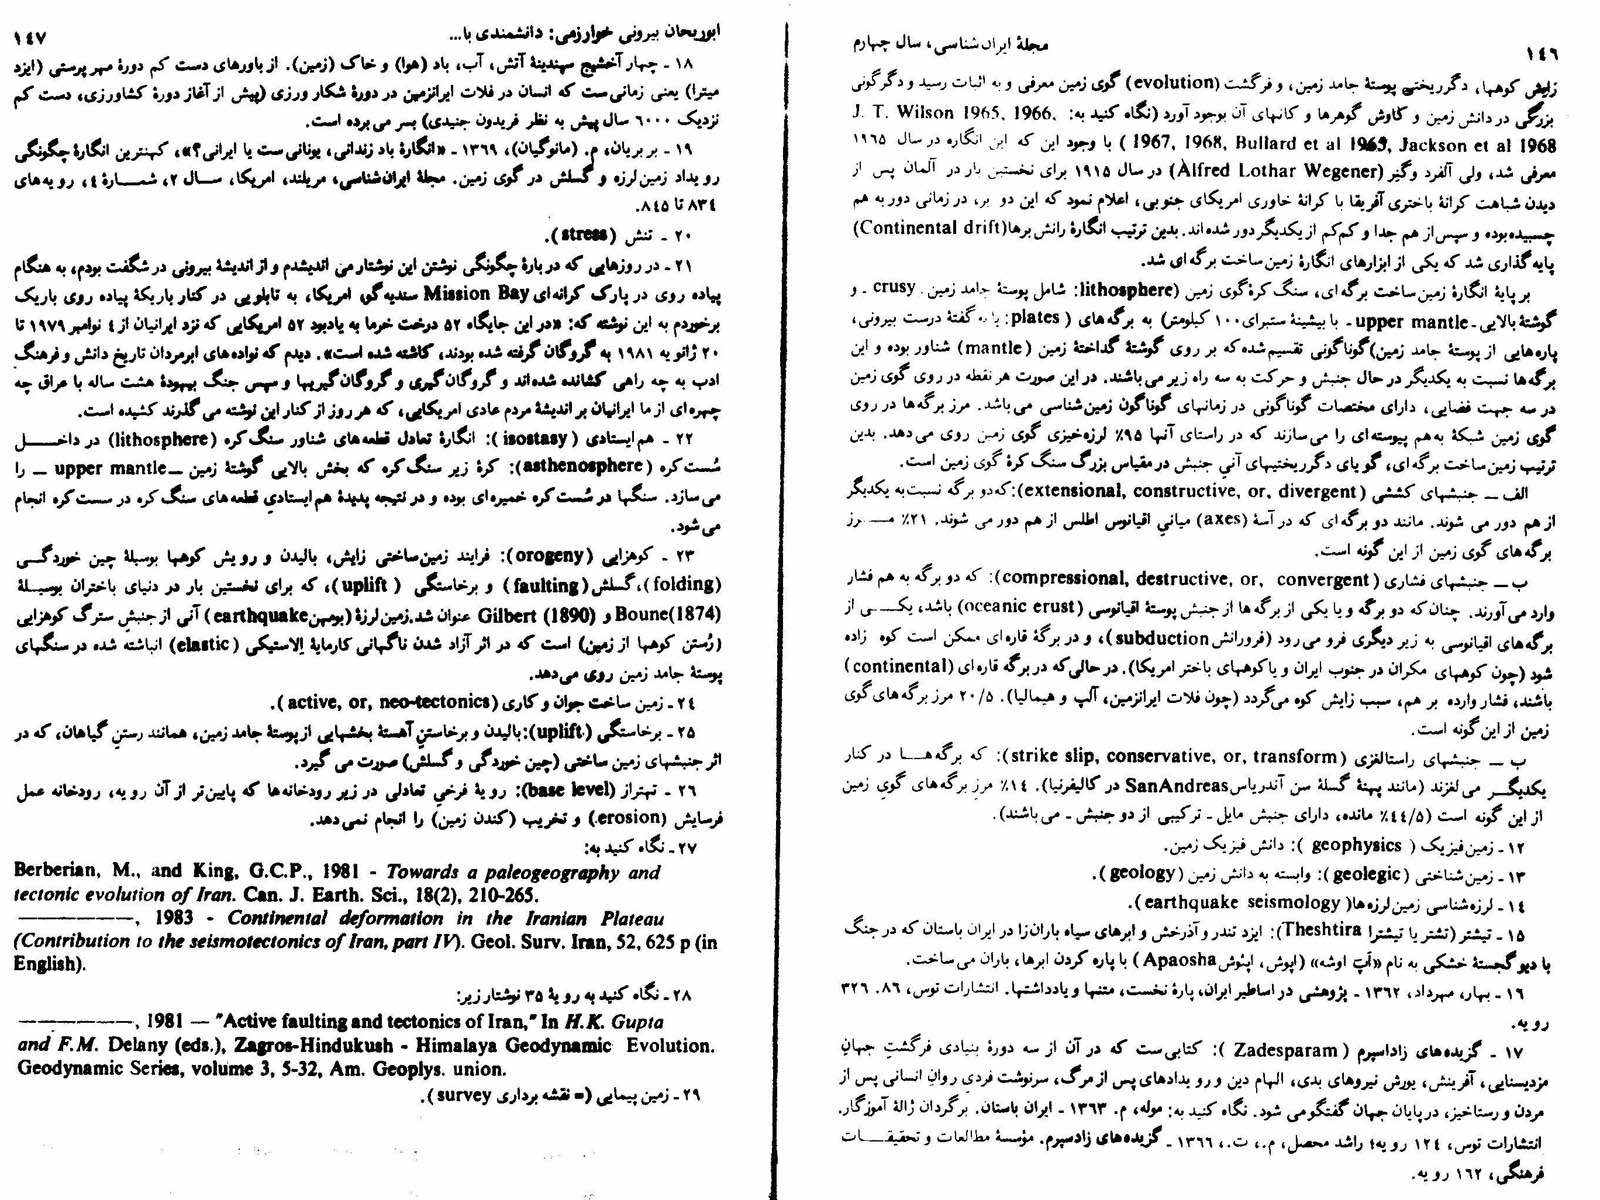 ١٤٦
مجلهٔ ایران شناسی، سال چهارم
زایش کوهها، دگرریختی پوستهٔ جامد زمین، و فرگشت (evolution) گوی زمین معرفی و به اثبات رسید و دگرگونی
بزرگی در دانش زمین و کاوش گوهرها و کانهای آن بوجود آورد (نگاه کنید به: J. T. Wilson 1965, 1966,
1967, 1968, Bullard et al 1965, Jackson et al 1968) با وجود این که این انگاره در سال ١٩٦٥
معرفی شد، ولی آلفرد وگنِر (Alfred Lothar Wegener) در سال ١٩١٥ برای نخستین بار در آلمان پس از
دیدن شباهت کرانهٔ باختری آفریقا با کرانهٔ خاوری امریکای جنوبی، اعلام نمود که این دو بر، در زمانی دور به هم
چسبیده بوده و سپس از هم جدا و کم کم از یکدیگر دور شده اند. بدین ترتیب انگارهٔ رانش برها (Continental drift)
پایه گذاری شد که یکی از ابزارهای انگارهٔ زمین ساخت برگه ای شد.
بر پایهٔ انگارهٔ زمین ساخت برگه ای، سنگ کرهٔ گوی زمین (lithosphere: شامل پوستهٔ جامد زمین. crusy ـ و
گوشتهٔ بالایی ـ upper mantle ـ با بیشینهٔ ستبرای ١٠٠ کیلومتر) به برگه های (plates: یا به گفتهٔ درست بیرونی،
پاره هایی از پوستهٔ جامد زمین) گوناگونی تقسیم شده که بر روی گوشتهٔ گداختهٔ زمین (mantle) شناور بوده و این
برگه ها نسبت به یکدیگر در حال جنبش و حرکت به سه راه زیر می باشند. در این صورت هر نقطه در روی گوی زمین
در سه جهت فضایی، دارای مختصات گوناگونی در زمانهای گوناگون زمین شناسی می باشد. مرز برگه ها در روی
گوی زمین شبکهٔ به هم پیوسته ای را می سازند که در راستای آنها ٩٥٪ لرزه خیزی گوی زمین روی می دهد. بدین
ترتیب زمین ساخت برگه ای، گویای دگرریختیهای آنیِ جنبش در مقیاس بزرگ سنگ کرهٔ گوی زمین است.
الف ــ جنبشهای کششی (extensional, constructive, or, divergent): که دو برگه نسبت به یکدیگر
از هم دور می شوند. مانند دو برگه ای که در آسهٔ (axes) میانیِ اقیانوس اطلس از هم دور می شوند. ٢١٪ مــرز
برگه های گوی زمین از این گونه است.
ب ــ جنبشهای فشاری (compressional, destructive, or, convergent): که دو برگه به هم فشار
وارد می آورند. چنان که دو برگه و یا یکی از برگه ها از جنبش پوستهٔ اقیانوسی (oceanic erust) باشد، یکــی از
برگه های اقیانوسی به زیر دیگری فرو می رود (فرورانش subduction)، و در برگهٔ قاره ای ممکن است کوه زاده
شود (چون کوههای مکران در جنوب ایران و یا کوههای باختر امریکا). در حالی که در برگه قاره ای (continental)
باشند، فشار وارده بر هم، سبب زایش کوه می گردد (چون فلات ایرانزمین، آلپ و هیمالیا). ٢٠/٥ مرز برگه های گوی
زمین از این گونه است.
ب ــ جنبشهای راستالغزی (strike slip, conservative, or, transform): که برگه هــا در کنار
یکدیگــر می لغزند (مانند پهنهٔ گسلهٔ سن آندریاس SanAndreas در کالیفرنیا). ١٤٪ مرز برگه های گویِ زمین
از این گونه است (٤٤/٥٪ مانده، دارای جنبش مایل ـ ترکیبی از دو جنبش ـ می باشند).
١٢ ـ زمین فیزیک (geophysics): دانش فیزیک زمین.
١٣ ـ زمین شناختی (geolegic): وابسته به دانش زمین (geology).
١٤ ـ لرزه شناسی زمین لرزه ها (earthquake seismology).
١٥ ـ تیشتر (تشتر یا تیشترا Theshtira): ایزد تندر و آذرخش و ابرهای سیاه باران زا در ایران باستان که در جنگ
با دیو گجستهٔ خشکی به نام «اَپَ اوشه» (اپوش، اپئوش Apaosha) با پاره کردن ابرها، باران می ساخت.
١٦ ـ بهار، مهرداد، ١٣٦٢ ـ پژوهشی در اساطیر ایران، پارهٔ نخست، متنها و یادداشتها. انتشارات توس، ٨٦. ٣٢٦
رویه.
١٧ ـ گزیده های زاداسپرم (Zadesparam): کتابی ست که در آن از سه دورهٔ بنیادی فرگشتِ جهانِ
مزدیسنایی، آفرینش، یورش نیروهای بدی، الهام دین و رویدادهای پس از مرگ، سرنوشت فردیِ روانِ انسانی پس از
مردن و رستاخیز، در پایان جهان گفتگو می شود. نگاه کنید به: موله، م. ١٣٦٣ ـ ایران باستان. برگردان ژالهٔ آموزگار.
انتشارات توس، ١٢٤ رویه؛ راشد محصل، م.، ت.، ١٣٦٦ ـ گزیده های زادسپرم. مؤسسهٔ مطالعات و تحقیقــات
فرهنگی، ١٦٢ رویه.
ابوریحان بیرونی خوارزمی: دانشمندی با...
١٤٧
١٨ ـ چهار آخشیج سپندینهٔ آتش، آب، باد (هوا) و خاک (زمین). از باورهای دست کم دورهٔ مهر پرستی (ایزد
میترا) یعنی زمانی ست که انسان در فلات ایرانزمین در دورهٔ شکار ورزی (پیش از آغاز دورهٔ کشاورزی، دست کم
نزدیک ٦٠٠٠ سال پیش به نظر فریدون جنیدی) بسر می برده است.
١٩ ـ بربریان، م. (مانوگیان)، ١٣٦٩ ـ «انگارهٔ باد زندانی، یونانی ست یا ایرانی؟»، کهنترین انگارهٔ چگونگی
رویداد زمین لرزه و گسلش در گوی زمین. مجلهٔ ایران شناسی، مریلند، امریکا، ســال ٢، شمــارهٔ ٤، رویه های
٨٣٤ تا ٨٤٥.
٢٠ ـ تنش (stress).
٢١ ـ در روزهایی که دربارهٔ چگونگی نوشتن این نوشتار می اندیشدم و از اندیشهٔ بیرونی در شگفت بودم، به هنگام
پیاده روی در پارک کرانه ای Mission Bay سندیه گو، امریکا، به تابلویی در کنار باریکهٔ پیاده روی باریک
برخوردم به این نوشته که: «در این جایگاه ٥٢ درخت خرما به یادبود ٥٢ امریکایی که نزد ایرانیان از ٤ نوامبر ١٩٧٩ تا
٢٠ ژانویه ١٩٨١ به گروگان گرفته شده بودند، کاشته شده است». دیدم که نواده های ابرمردان تاریخ دانش و فرهنگ
ادب به چه راهی کشانده شده اند و گروگان گیری و گروگان گیریها و سپس جنگ بیهودهٔ هشت ساله با عراق چه
چهره ای از ما ایرانیان بر اندیشهٔ مردم عادی امریکایی، که هر روز از کنار این نوشته می گذرند کشیده است.
٢٢ ـ هم ایستادی (isostasy): انگارهٔ تعادل قطعه های شناور سنگ کره (lithosphere) در داخــل
سُست کره (asthenosphere): کرهٔ زیر سنگ کره که بخش بالایی گوشتهٔ زمین ــ upper mantle ــ را
می سازد. سنگها در سُست کره خمیره ای بوده و در نتیجه پدیدهٔ هم ایستادیِ قطعه های سنگ کره در سست کره انجام
می شود.
٢٣ ـ کوهزایی (orogeny): فرایند زمین ساختی زایش، بالیدن و رویش کوهها بوسیلهٔ چین خوردگــی
(folding)، گسلش (faulting) و برخاستگی (uplift)، که برای نخستین بار در دنیای باختران بوسیــلهٔ
Boune(1874) و Gilbert (1890) عنوان شد. زمین لرزهٔ (بومهن earthquake) آنی از جنبشِ سترگ کوهزایی
(رُستن کوهها از زمین) است که در اثر آزاد شدن ناگهانی کارمایهٔ اِلاستیکی (elastic) انباشته شده در سنگهای
پوستهٔ جامد زمین روی می دهد.
٢٤ ـ زمین ساخت جوان و کاری (active, or, neo-tectonics).
٢٥ ـ برخاستگی (uplift): بالیدن و برخاستنِ آهستهٔ بخشهایی از پوستهٔ جامد زمین، همانند رستنِ گیاهان، که در
اثر جنبشهای زمین ساختی (چین خوردگی و گسلش) صورت می گیرد.
٢٦ ـ تهتراز (base level): رویهٔ فرخیِ تعادلی در زیر رودخانه ها که پایین تر از آن رویه، رودخانه عمل
فرسایش (erosion) و تخریب (کندن زمین) را انجام نمی دهد.
٢٧ ـ نگاه کنید به:
Berberian, M., and King, G.C.P., 1981 - Towards a paleogeography and
tectonic evolution of Iran. Can. J. Earth. Sci., 18(2), 210-265.
——————, 1983 - Continental deformation in the Iranian Plateau
(Contribution to the seismotectonics of Iran, part IV). Geol. Surv. Iran, 52, 625 p (in
English).
٢٨ ـ نگاه کنید به رویهٔ ٣٥ نوشتار زیر:
——————, 1981 — "Active faulting and tectonics of Iran," In H.K. Gupta
and F.M. Delany (eds.), Zagros-Hindukush - Himalaya Geodynamic Evolution.
Geodynamic Series, volume 3, 5-32, Am. Geoplys. union.
٢٩ ـ زمین پیمایی (= نقشه برداری survey).